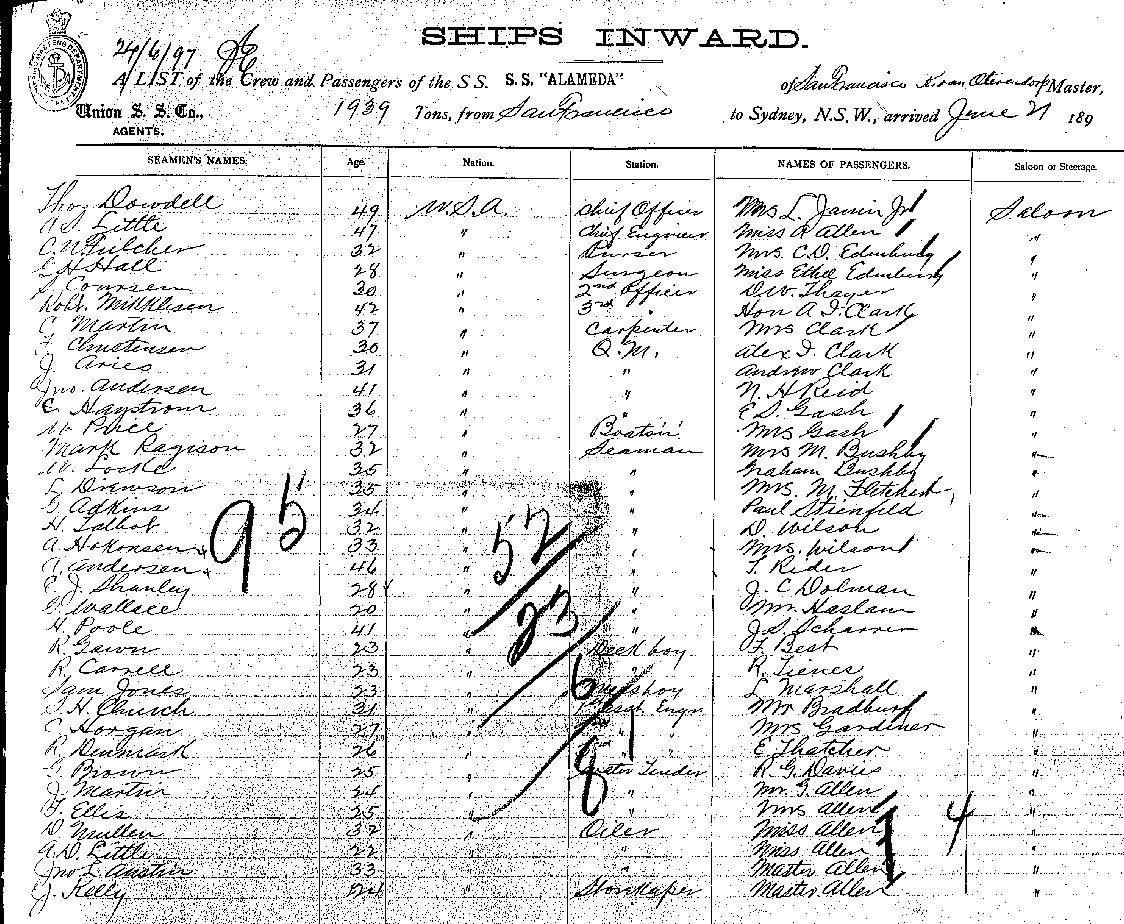 SHIPS INWARD.
24/6/97
A LIST of the Crew and Passengers of the S.S. S.S. "ALAMEDA" of San Francisco Master,
Union S. S. Co., 1939 Tons, from San Francisco to Sydney, N.S.W., arrived June 21 189
AGENTS.
SEAMEN'S NAMES. Age. Nation. Station. NAMES OF PASSENGERS. Saloon or Steerage.
Thos Dowdell 49 U.S.A. Chief Officer Mrs L. Jamin Jr Saloon
A. S. Little 47 " Chief Engineer Miss R Allen "
C. N. Pulcher 32 " Purser Mrs. C.D. Edenburg "
E H Hall 28 " Surgeon Miss Ethel Edenburg "
S. Coursen 30 " 2nd Officer D. W. Thayer "
Robt. Mikkelsen 42 " 3rd " Hon A. J. Clark "
C. Martin 37 " Carpenter Mrs Clark "
F. Christensen 30 " Q.M. Alex J. Clark "
J. Aries 31 " " Andrew Clark "
Jno. Andersen 41 " " N. H Reid "
C. Hagstrom 36 " " E S. Gash "
W. Price 27 " Boatn Mrs Gash "
Mark Ragison 32 " Seaman Mrs M. Bushby "
W. Locke 35 " " Graham Bushby "
L. Drewson 35 " " Mrs. M. Fletcher "
S. Adkins 34 " " Paul Stienfeld "
H. Talbot 32 " " D. Wilson "
A. Hakonsen 33 " " Mrs. Wilson "
A. Andersen 46 " " T. Rider "
E. J. Shanley 28 " " J. C Dolman "
G. Wallace 20 " " Mr. Haslam "
H. Poole 41 " " J. S. Scharrer "
R. Gawn 23 " Deck boy F. Best "
R. Carrell 23 " " R. Tienes "
Sam Jones 23 " Messboy L. Marshall "
S. H. Church 31 " Asst. Engr. Mr Bradbury "
C. Horgan 27 " " " Mrs Gardiner "
R. Denmark 26 " " " E Thatcher "
G. Brown 25 " Water Tender R. G. Davies "
J. Martin 24 " " Mr. G. Allen "
F. Ellis 25 " " Mrs Allen "
D. Mullen 32 " Oiler Miss Allen "
A. D. Little 22 " " Miss Allen "
Jno L Austin 33 " " Master Allen "
J. Kelly 24 " Storekeeper Master Allen "
95
52
23
6
81
4